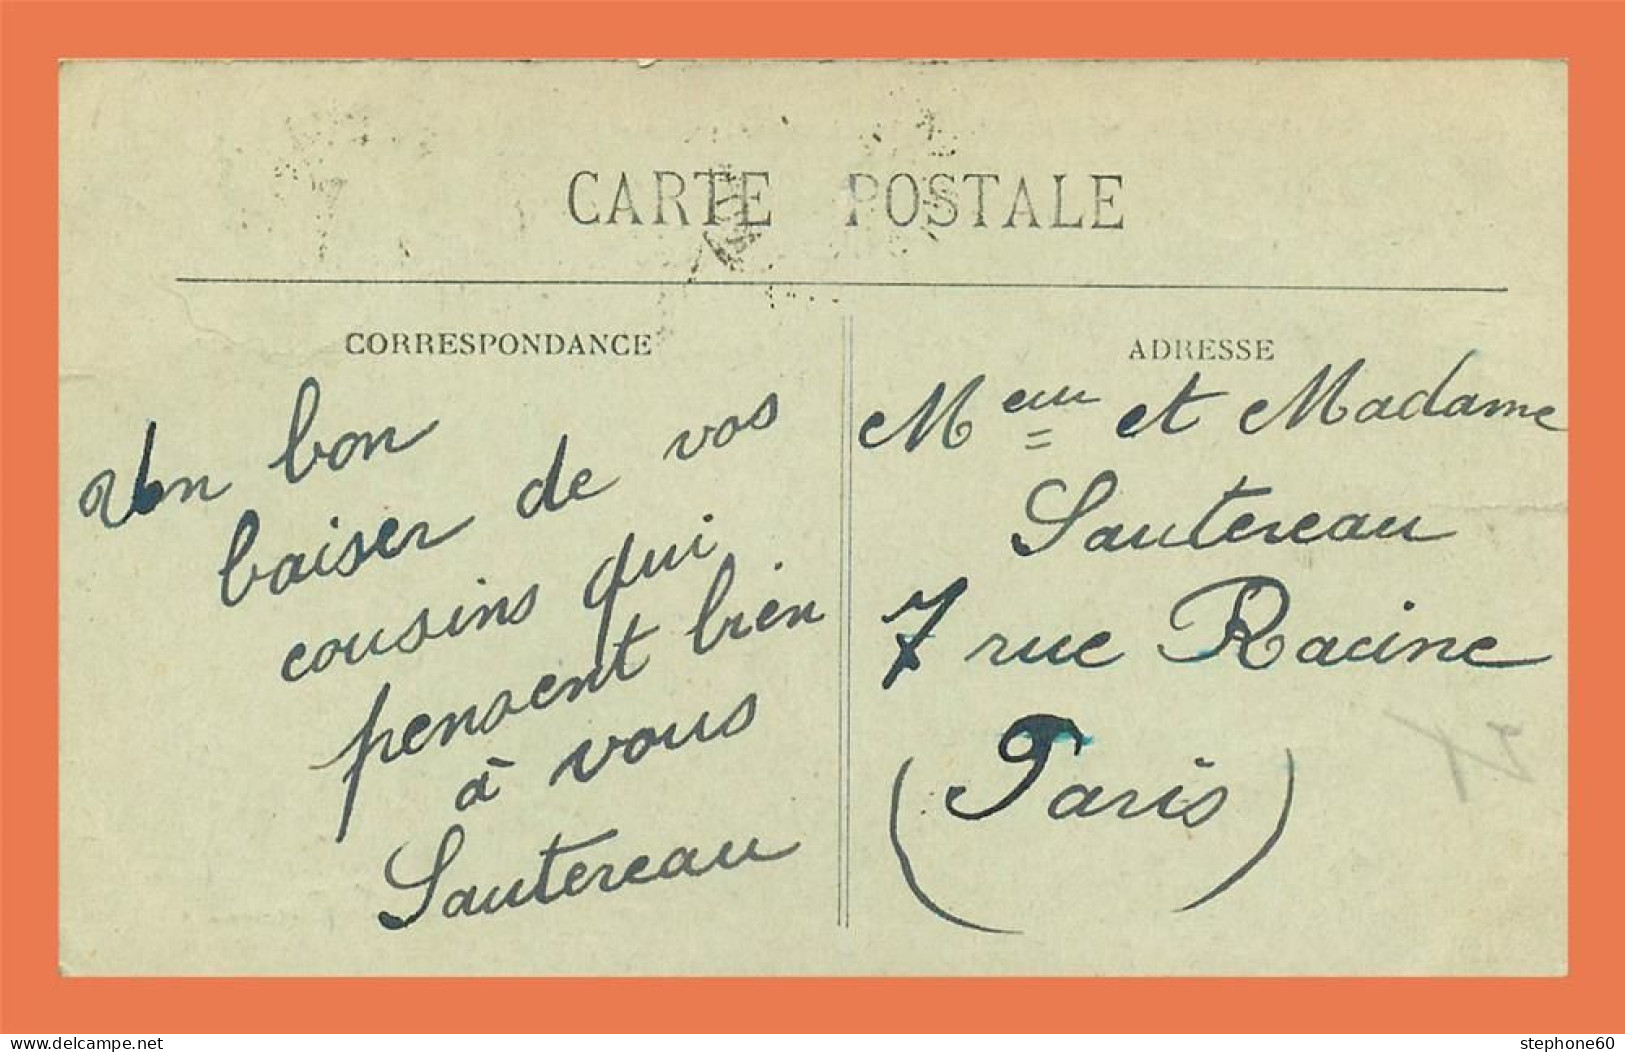 CARTE POSTALE
CORRESPONDANCE
Un bon
baiser de vos
cousins qui
pensent bien
à vous
Sautereau
ADRESSE
Meur et Madame
Sautereau
7 rue Racine
(Paris)
delcampe.net
stephone60